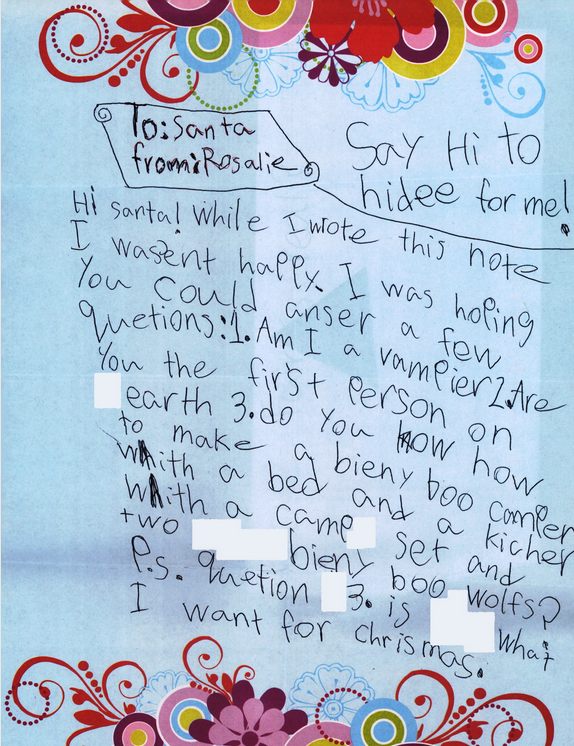 To: Santa
from: Rosalie
Say Hi to
hidee for me!
Hi santa! While I wrote this note
I wasent happy. I was hoping
You could anser a few
quetions: 1. Am I a vampier 2. Are
You the first person on
earth 3. do you know how
to make a bieny boo camper
whith a bed and a kichen
whith a camp set and
two bieny boo wolfs?
P.s. quetion 3. is what
I want for chrismas.